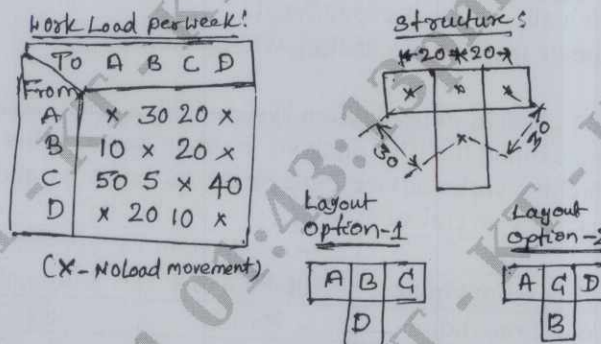 Work Load per week:
To A B C D
From
A × 30 20 ×
B 10 × 20 ×
C 50 5 × 40
D × 20 10 ×
(X - No Load movement)
Structure:
20 20
30
30
Layout
Option-1
A B C
D
Layout
Option-2
A C D
B
01:43:13pm
- KT - KT -